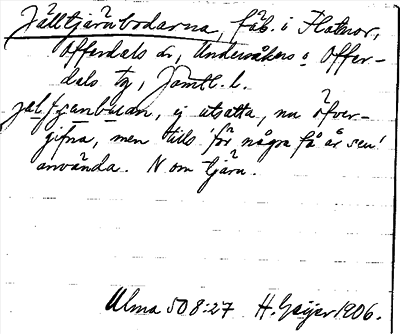 Jälltjärnbodarna, fäb. i Flatnor,
Offerdals sn, Undersåkers o Offer-
dals tg, Jämtl. l.
ej utsatta, nu öfver-
gifna, men tills 'för några få år sen'
använda. N om tjärn.
Ulma 508:27 H. Geijer 1906.